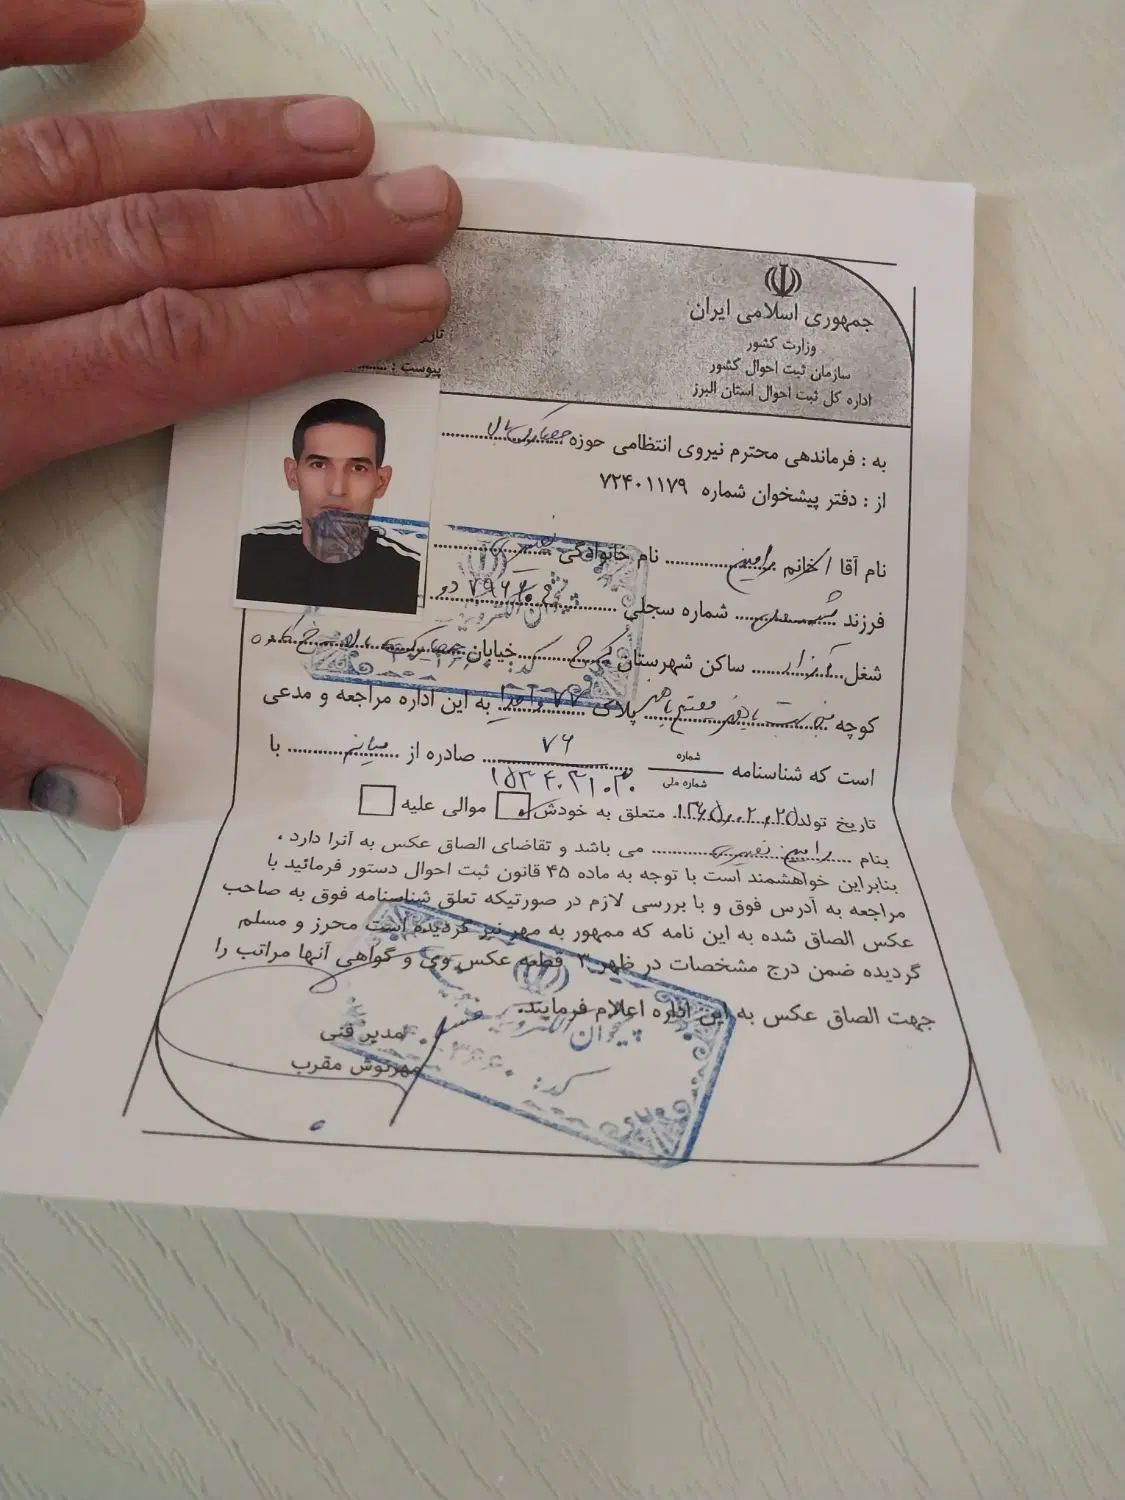 جمهوری اسلامی ایران
وزارت کشور
سازمان ثبت احوال کشور
اداره کل ثبت احوال استان البرز
پیوست :
به : فرماندهی محترم نیروی انتظامی حوزه
از : دفتر پیشخوان شماره ۷۲۴۰۱۱۷۹
نام آقا / خانم رامین نام خانوادگی
فرزند شماره سجلی
شغل آزاد ساکن شهرستان کرج خیابان
کوچه پلاک ۷۲ واحد۱ به این اداره مراجعه و مدعی
است که شناسنامه شماره ۷۶ صادره از میانه با
شماره ملی
تاریخ تولد ۱۳۶۵,۰۲,۲۵ متعلق به خودش موالی علیه
بنام رامین می باشد و تقاضای الصاق عکس به آنرا دارد ،
بنابراین خواهشمند است با توجه به ماده ۴۵ قانون ثبت احوال دستور فرمائید با
مراجعه به آدرس فوق و با بررسی لازم در صورتیکه تعلق شناسنامه فوق به صاحب
عکس الصاق شده به این نامه که ممهور به مهر نیز گردیده است محرز و مسلم
گردیده ضمن درج مشخصات در ظهر ۳ قطعه عکس وی و گواهی آنها مراتب را
جهت الصاق عکس به این اداره اعلام فرمایند.
مدیر فنی
مهرنوش مقرب
پیشخوان الکترونیک
کد: